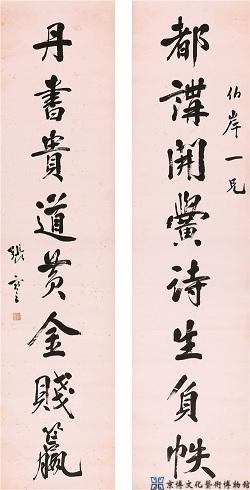 伯岸一兄
都講開黌詩生負帙
丹書貴道黃金賤籯
張謇
京博文化藝術博物館